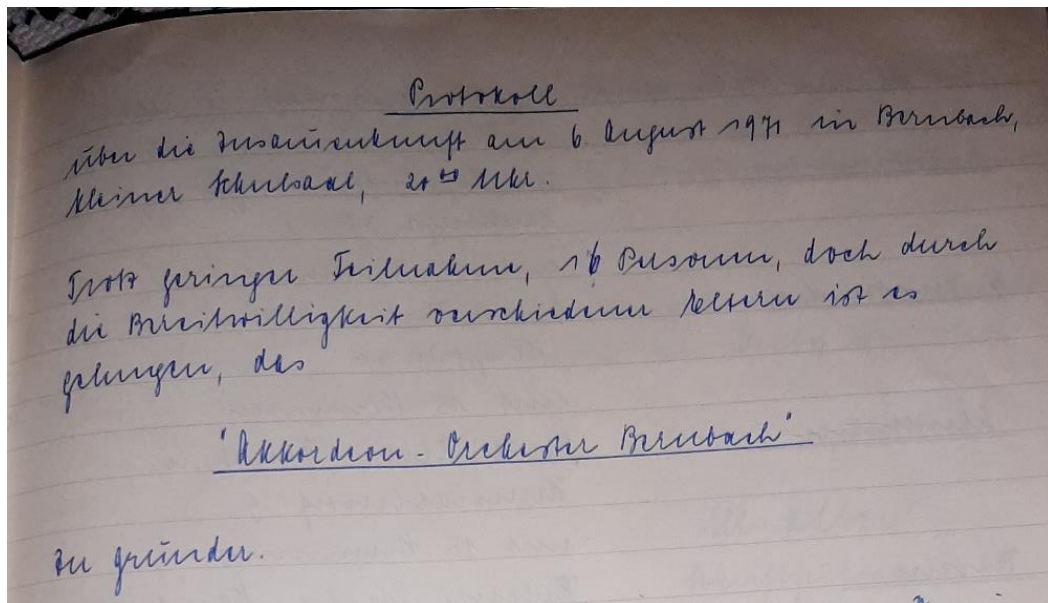 Protokoll
über die Zusammenkunft am 6. August 1971 in Bernbach,
kleiner Schulsaal, 20 00 Uhr.
Trotz geringer Teilnahme, 16 Personen, doch durch
die Bereitwilligkeit verschiedener Eltern ist es
gelungen, das
"Akkordeon - Orchester Bernbach"
zu gründen.